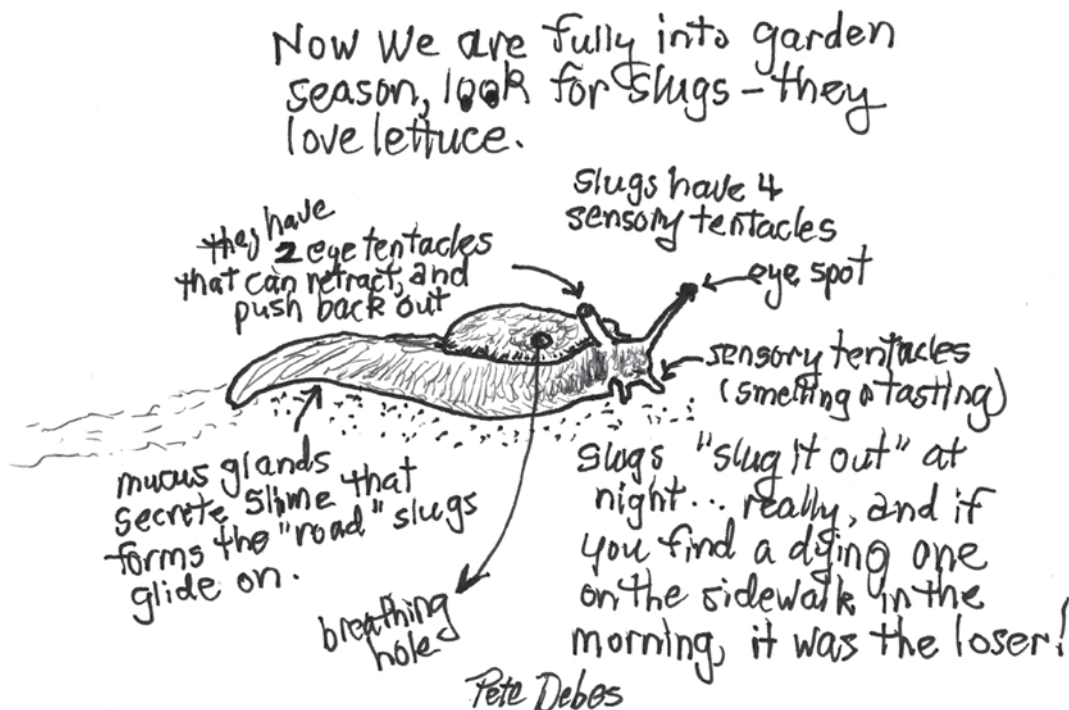 Now we are fully into garden
season, look for slugs - they
love lettuce.
slugs have 4
sensory tentacles
they have
2 eye tentacles
that can retract, and
push back out
eye spot
sensory tentacles
(smelling & tasting)
mucus glands
secrete slime that
forms the "road" slugs
glide on.
breathing
hole
slugs "slug it out" at
night... really, and if
you find a dying one
on the sidewalk in the
morning, it was the loser!
Pete Debes